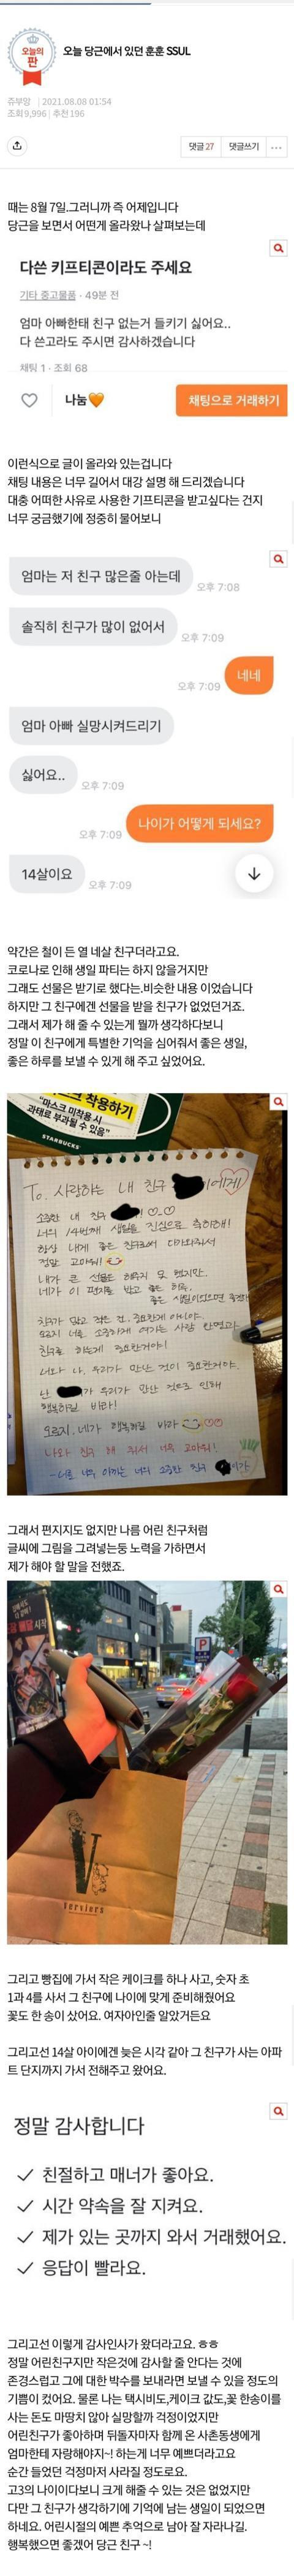 오늘의
판
오늘 당근에서 있던 훈훈 SSUL
쥬부앙 | 2021.08.08 01:54
조회 9,996 | 추천 196
댓글 27
댓글쓰기
때는 8월 7일.그러니까 즉 어제입니다
당근을 보면서 어떤게 올라왔나 살펴보는데
다쓴 키프티콘이라도 주세요
기타 중고물품 · 49분 전
엄마 아빠한태 친구 없는거 들키기 싫어요..
다 쓴고라도 주시면 감사하겠습니다
채팅 1 · 조회 68
나눔🧡
채팅으로 거래하기
이런식으로 글이 올라와 있는겁니다
채팅 내용은 너무 길어서 대강 설명 해 드리겠습니다
대충 어떠한 사유로 사용한 기프티콘을 받고싶다는 건지
너무 궁금했기에 정중히 물어보니
엄마는 저 친구 많은줄 아는데
오후 7:08
솔직히 친구가 많이 없어서
오후 7:09
네네
오후 7:09
엄마 아빠 실망시켜드리기
싫어요..
오후 7:09
나이가 어떻게 되세요?
오후 7:09
14살이요
오후 7:09
약간은 철이 든 열 네살 친구더라고요.
코로나로 인해 생일 파티는 하지 않을거지만
그래도 선물은 받기로 했다는.비슷한 내용 이었습니다
하지만 그 친구에겐 선물을 받을 친구가 없었던거죠.
그래서 제가 해 줄 수 있는게 뭘까 생각하다보니
정말 이 친구에게 특별한 기억을 심어줘서 좋은 생일,
좋은 하루를 보낼 수 있게 해 주고 싶었어요.
착용하기
"마스크 미착용 시
과태료 부과될 수 있음"
STARBUCKS
To. 사랑하는 내 친구 이에게!
소중한 내 친구
너의 14번째 생일을 진심으로 축하해!
항상 내게 좋은 친구로서 다가와줘서
정말 고마워!
내가 큰 선물은 해주지 못 했지만.
네가 이 편지를 받고 좋은 하루,
좋은 생일이었으면 좋겠어
친구가 많고 적은 건 중요한게 아니야.
친구로 하는게 중요한거야!
너와 나. 우리가 만난 것이 중요한거야.
난 가 우리가 만난 것으로 인해
행복하길 바라!
오로지. 네가 행복하길 바라
나와 친구 해 줘서 너무 고마워!
-너를 너무 아끼는 너의 소중한 친구 가-
그래서 편지지도 없지만 나름 어린 친구처럼
글씨에 그림을 그려넣는둥 노력을 가하면서
제가 해야 할 말을 전했죠.
P
V
Verviers
그리고 빵집에 가서 작은 케이크를 하나 사고, 숫자 초
1과 4를 사서 그 친구에 나이에 맞게 준비해줬어요
꽃도 한 송이 샀어요. 여자아인줄 알았거든요
그리고선 14살 아이에겐 늦은 시각 같아 그 친구가 사는 아파
트 단지까지 가서 전해주고 왔어요.
정말 감사합니다
✓ 친절하고 매너가 좋아요.
✓ 시간 약속을 잘 지켜요.
✓ 제가 있는 곳까지 와서 거래했어요.
✓ 응답이 빨라요.
그리고선 이렇게 감사인사가 왔더라고요. ㅎㅎ
정말 어린친구지만 작은것에 감사할 줄 안다는 것에
존경스럽고 그에 대한 박수를 보내라면 보낼 수 있을 정도의
기쁨이 컸어요. 물론 나는 택시비도,케이크 값도,꽃 한송이를
사는 돈도 마땅치 않아 실망할까 걱정이었지만
어린친구가 좋아하며 뒤돌자마자 함께 온 사촌동생에게
엄마한테 자랑해야지~! 하는게 너무 예쁘더라고요
순간 들었던 걱정마저 사라질 정도로요.
고3의 나이이다보니 크게 해줄 수 있는 것은 없었지만
다만 그 친구가 생각하기에 기억에 남는 생일이 되었으면
하네요. 어린시절의 예쁜 추억으로 남아 잘 자라나길.
행복했으면 좋겠어 당근 친구 ~!